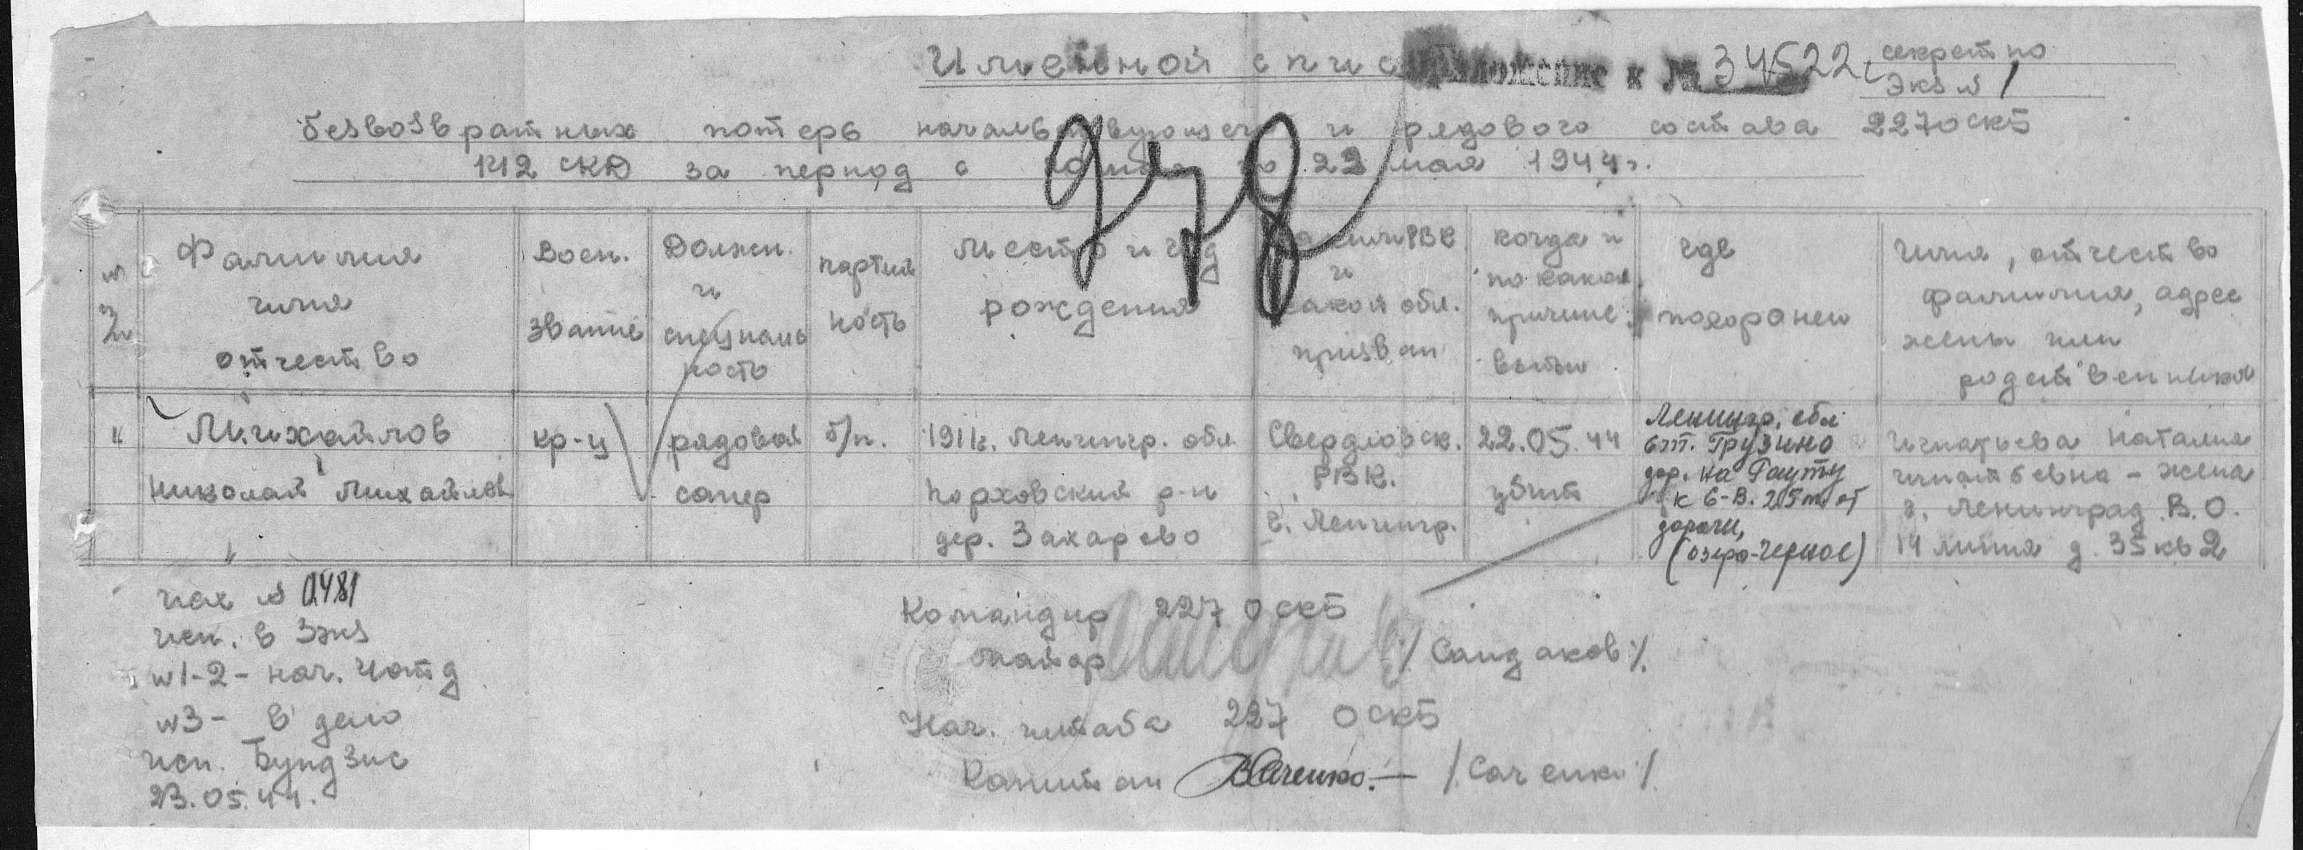 Именной спис
Приложение к № 34522с
секретно
Экз № 1
безвозвратных потерь начальствующего и рядового состава 227 оскб
142 СКД за период с по 22 мая 1944г.
978
№
Фамилия
имя
отчество
Воен.
звание
Должн.
и
специаль
ность
партий
ность
место и год
рождения
каким РВК
и
какой обл.
призван
когда и
по какой
причине
выбыл
где
похоронен
Имя, отчество
фамилия, адрес
жены или
родственников
Михайлов
Николай Михайлов
кр-ц
рядовой
сапер
б/п.
1911г. Ленингр. обл
Порховский р-н
дер. Захарево
Свердловск.
РВК.
г. Ленингр.
22.05.44
убит
Ленингр. обл
ст. Грузино
дор. на Рауту
к С-В. 25 м от
дороги,
(озеро-Черное)
Игнатьева Наталия
Игнатьевна - жена
г. Ленинград В.О.
14 линия д. 35 кв 2
исх № 0481
исп. в 3 экз
№1-2 - нач. 4 отд
№3 - в дело
исп. Бундзис
23.05.44.
Командир 227 оскб
майор / Сандаков /.
Нач. штаба 227 оскб
Капитан Саченко / Саченко /.